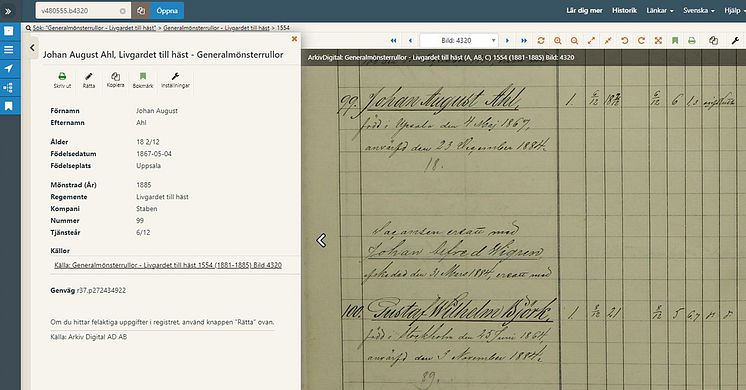 v480555.b4320
Öppna
Lär dig mer
Historik
Länkar
Svenska
Hjälp
Sök: "Generalmönsterrullor - Livgardet till häst" > Generalmönsterrullor - Livgardet till häst > 1554
Johan August Ahl, Livgardet till häst - Generalmönsterrullor
Skriv ut
Rätta
Kopiera
Bokmärk
Inställningar
Förnamn Johan August
Efternamn Ahl
Ålder 18 2/12
Födelsedatum 1867-05-04
Födelseplats Uppsala
Mönstrad (År) 1885
Regemente Livgardet till häst
Kompani Staben
Nummer 99
Tjänsteår 6/12
Källor
Källa: Generalmönsterrullor - Livgardet till häst 1554 (1881-1885) Bild 4320
Genväg r37.p272434922
Om du hittar felaktiga uppgifter i registret, använd knappen "Rätta" ovan.
Källa: Arkiv Digital AD AB
Bild: 4320
ArkivDigital: Generalmönsterrullor - Livgardet till häst (A, AB, C) 1554 (1881-1885) Bild: 4320
99. Johan August Ahl, 1. 6/12 18 2/12 6/12 6 1,3
född i Upsala den 4 Maj 1867,
anvärfd den 23 December 1884.
18.
ersatt med
Johan Alfred Wigren
afskedad den 31 Mars 1884, ersatt med
100. Gustaf Wilhelm Björk, 1 21 5 6,7
född i Stockholm den 25 Juni 1864
anvärfd den 3 November 1884.
89.